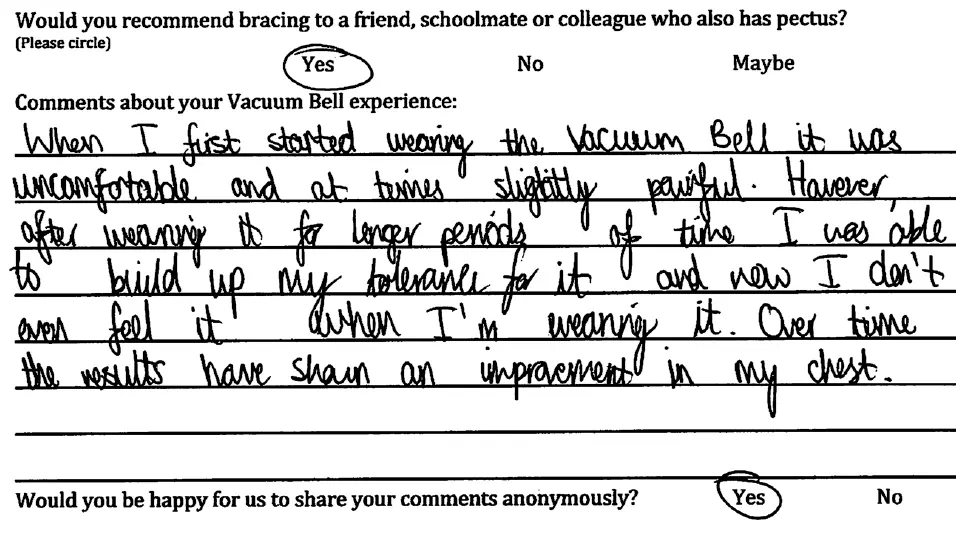 Would you recommend bracing to a friend, schoolmate or colleague who also has pectus?
(Please circle)
Yes No Maybe
Comments about your Vacuum Bell experience:
When I first started wearing the Vacuum Bell it was
uncomfortable and at times slightly painful. However,
after wearing it for longer periods of time I was able
to build up my tolerance for it and now I don't
even feel it when I'm wearing it. Over time
the results have shown an improvement in my chest.
Would you be happy for us to share your comments anonymously? Yes No